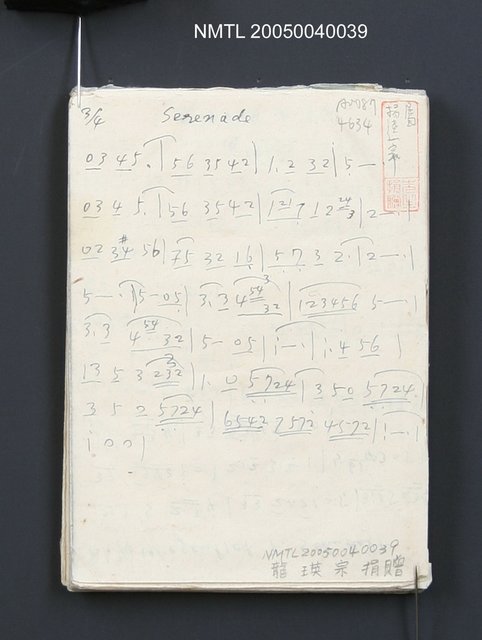 NMTL 20050040039
3/4 Serenade
4634
03 45· | 56 35 42 | 1· 2 32 | 5 — ·
03 4 5· | 56 35 42 | 1217 1 2 | 2 — · |
02 3#4 56 | 75 32 16 | 5 7 3 2· | 2 — · |
5 — · | 5 — 05 | 3·3 4 54 32 | 123456 5 — · |
3·3 4 54 32 | 5 — 05 | i — · | i· 4 56 |
13 5 3 232 | 1· 0 5724 | 3 50 5724
3 5 2 5724 | 6542 7572 4572 | i — · |
i 0 0 |
NMTL 20050040039
龍瑛宗捐贈